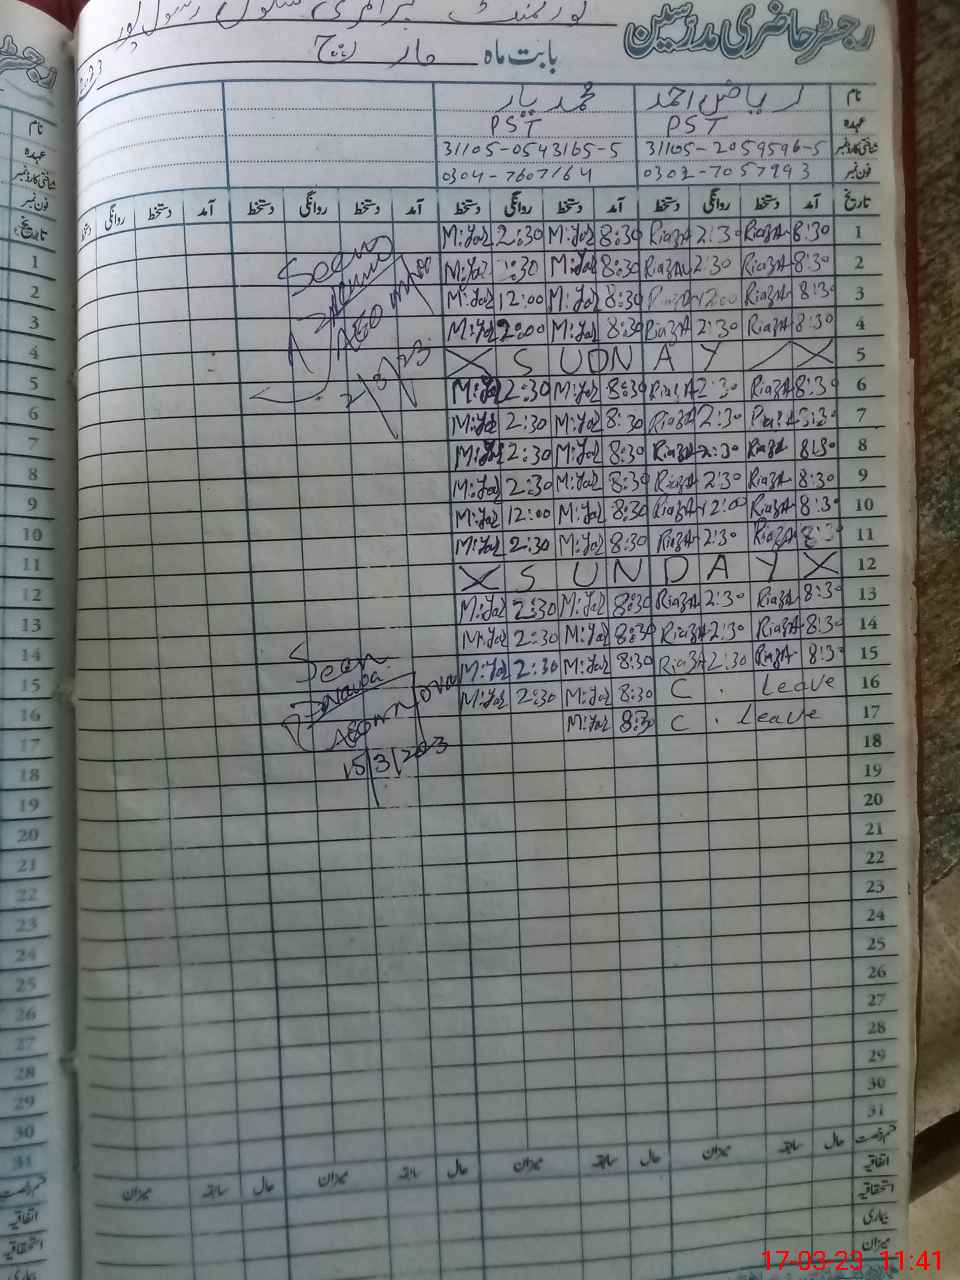 رجسٹر حاضری مدرسین
گورنمنٹ پرائمری سکول رسول پور
بابت ماہ مارچ
نام ریاض احمد محمد یار
عہدہ PST PST
شناختی کارڈ نمبر 31105-2059596-5 31105-0543165-5
فون نمبر 0302-7057993 0304-7607164
تاریخ آمد دستخط روانگی دستخط آمد دستخط روانگی دستخط آمد دستخط روانگی دستخط آمد دستخط روانگی دستخط
M:Yar 2:30 M:Yar 8:30 RiazA 2:30 RiazA 8:30 1
M:Yar :30 M:Yar 8:30 RiazA 2:30 RiazA 8:30 2
M:Yar 12:00 M:Yar 8:30 RiazA 12:00 RiazA 8:30 3
M:Yar 2:00 M:Yar 8:30 RiazA 2:30 RiazA 8:30 4
X S UDN A Y X 5
M:Yar 2:30 M:Yar 8:30 RiazA 2:30 RiazA 8:30 6
M:Yar 2:30 M:Yar 8:30 RiazA 2:30 RiazA 8:30 7
M:Yar 2:30 M:Yar 8:30 RiazA 2:30 RiazA 8:30 8
M:Yar 2:30 M:Yar 8:30 RiazA 2:30 RiazA 8:30 9
M:Yar 12:00 M:Yar 8:30 RiazA 12:00 RiazA 8:30 10
M:Yar 2:30 M:Yar 8:30 RiazA 2:30 RiazA 8:30 11
X S U N D A Y X 12
M:Yar 2:30 M:Yar 8:30 RiazA 2:30 RiazA 8:30 13
M:Yar 2:30 M:Yar 8:30 RiazA 2:30 RiazA 8:30 14
M:Yar 2:30 M:Yar 8:30 RiazA 2:30 RiazA 8:30 15
M:Yar 2:30 M:Yar 8:30 C . Leave 16
M:Yar 8:30 C . Leave 17
18
19
20
21
22
23
24
25
26
27
28
29
30
31
Seen
AEO
Seen
15/3/2023
حال سابقہ میزان حال سابقہ میزان حال سابقہ میزان حال سابقہ میزان
اتفاقیہ
استحقاقیہ
بیماری
میزان
نام
عہدہ
شناختی کارڈ نمبر
فون نمبر
تاریخ
1
2
3
4
5
6
7
8
9
10
11
12
13
14
15
16
17
18
19
20
21
22
23
24
25
26
27
28
29
30
31
اتفاقیہ
استحقاقیہ
17-03-23 11:41